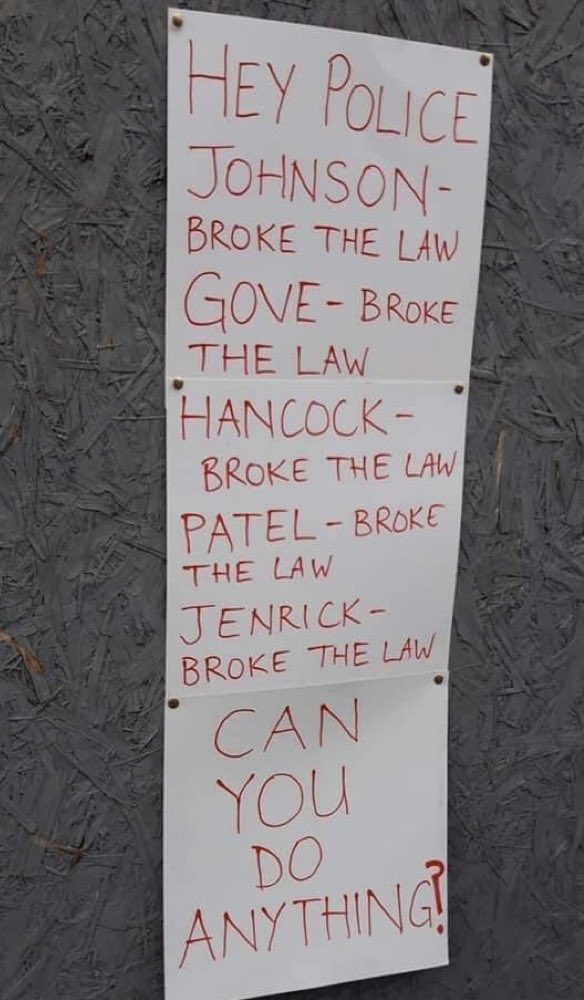 HEY POLICE
JOHNSON-
BROKE THE LAW
GOVE - BROKE
THE LAW
HANCOCK -
BROKE THE LAW
PATEL - BROKE
THE LAW
JENRICK -
BROKE THE LAW
CAN
YOU
DO
ANYTHING?